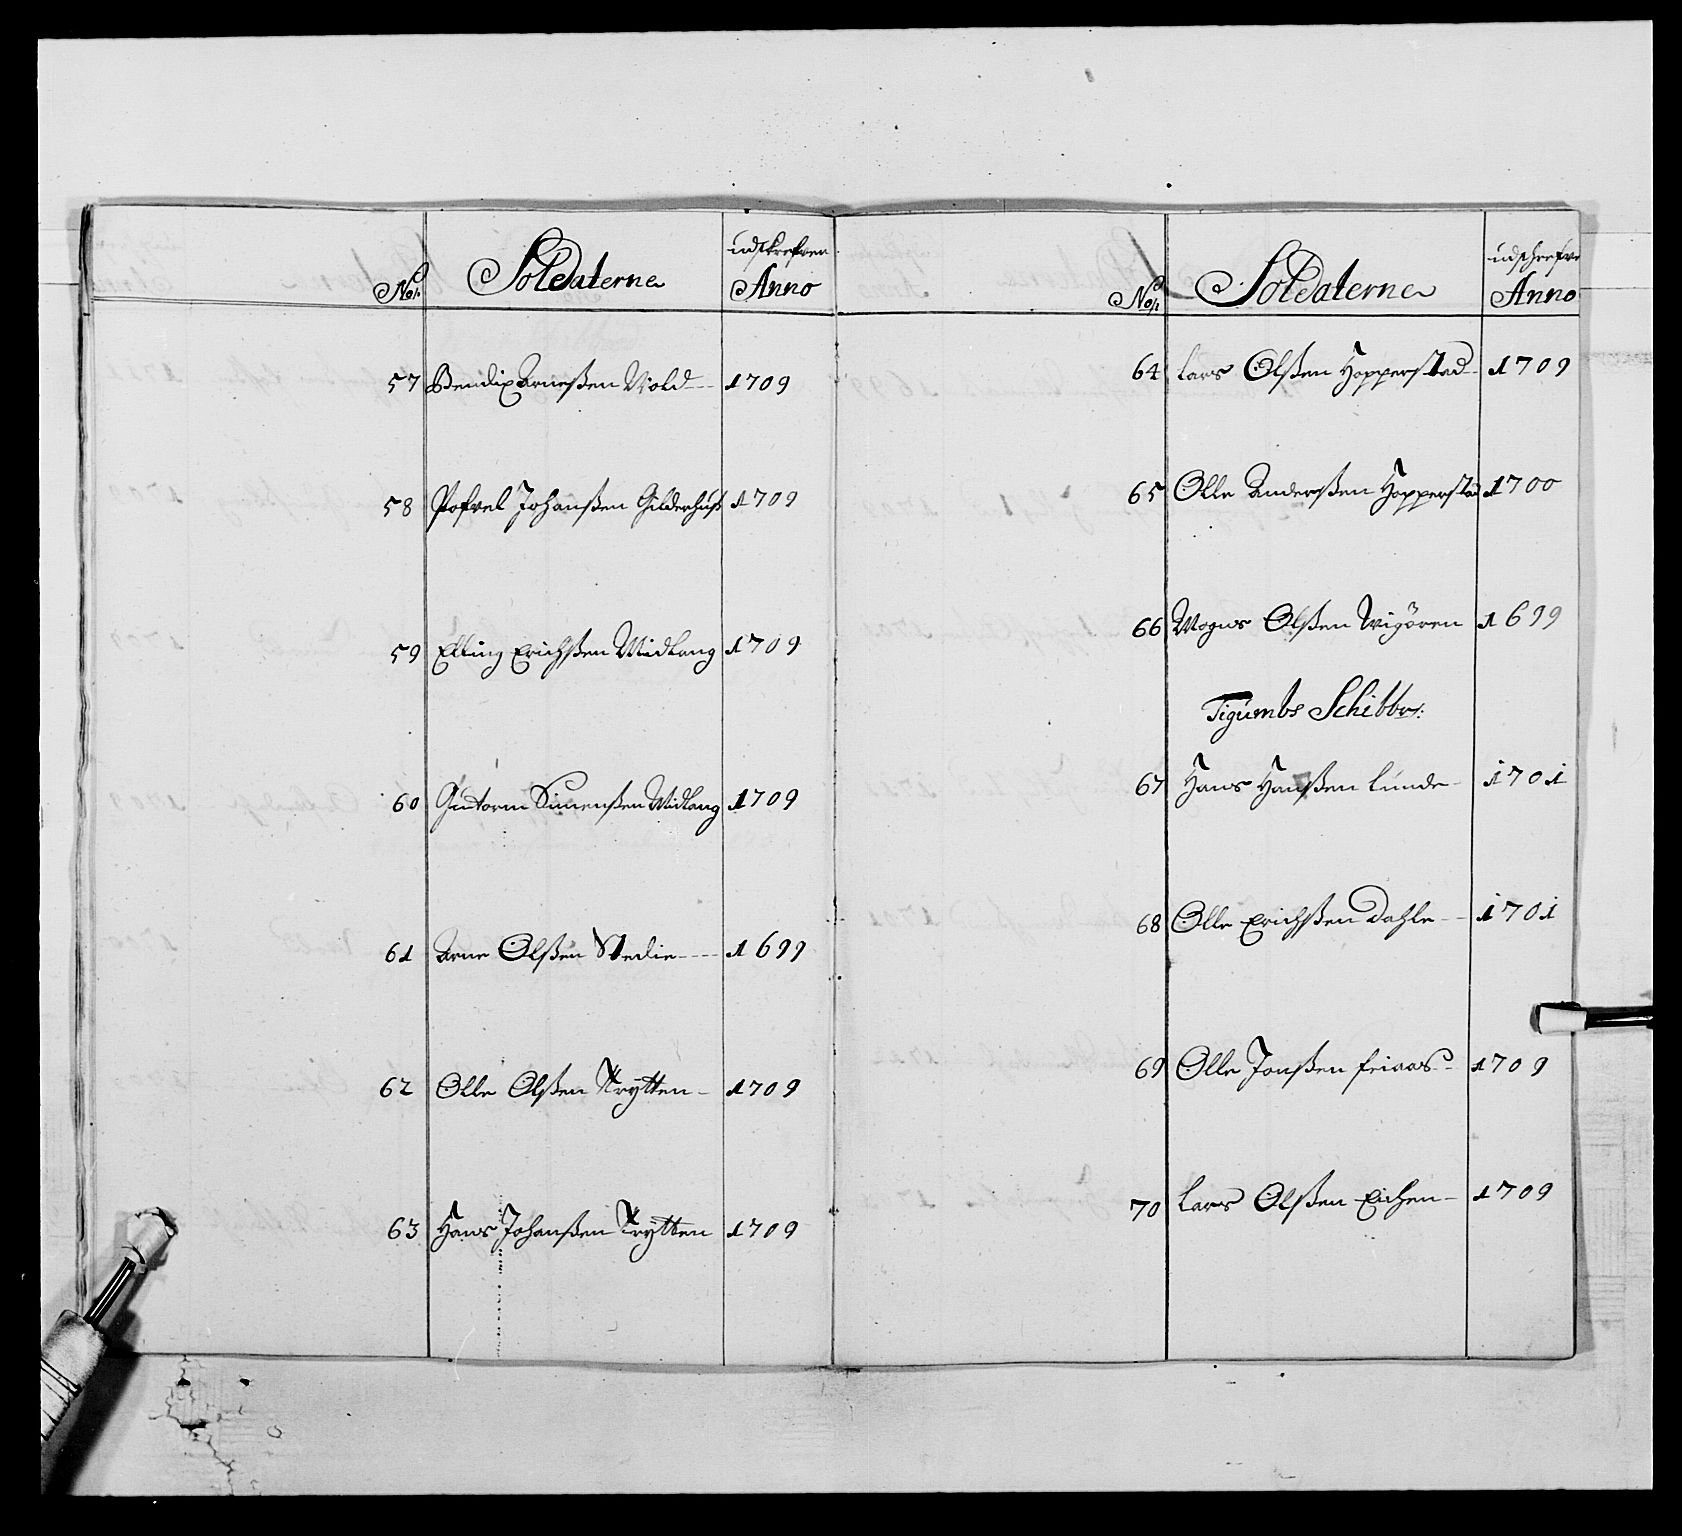 No: Soldaterne udskrefven Anno
57 Bendix Arneßen Wold 1709
58 Pofvel Johanßen Gilderhuß 1709
59 Elling Erichßen Midlang 1709
60 Gutorm Simenßen Midlang 1709
61 Arne Olßen Stedie 1699
62 Olle Olßen Trytten 1709
63 Hans Johanßen Trytten 1709
No: Soldaterne udschrefve Anno
64 Lars Olßen Hopperstad 1709
65 Olle Anderßen Hopperstad 1700
66 Mogns Olßen 1699
Tigumbs Schibbr:
67 Hans Hanßen Lunde 1701
68 Olle Erichßen Dahle 1701
69 Olle Jonßen feiaas 1709
70 Lars Olßen Eichen 1709